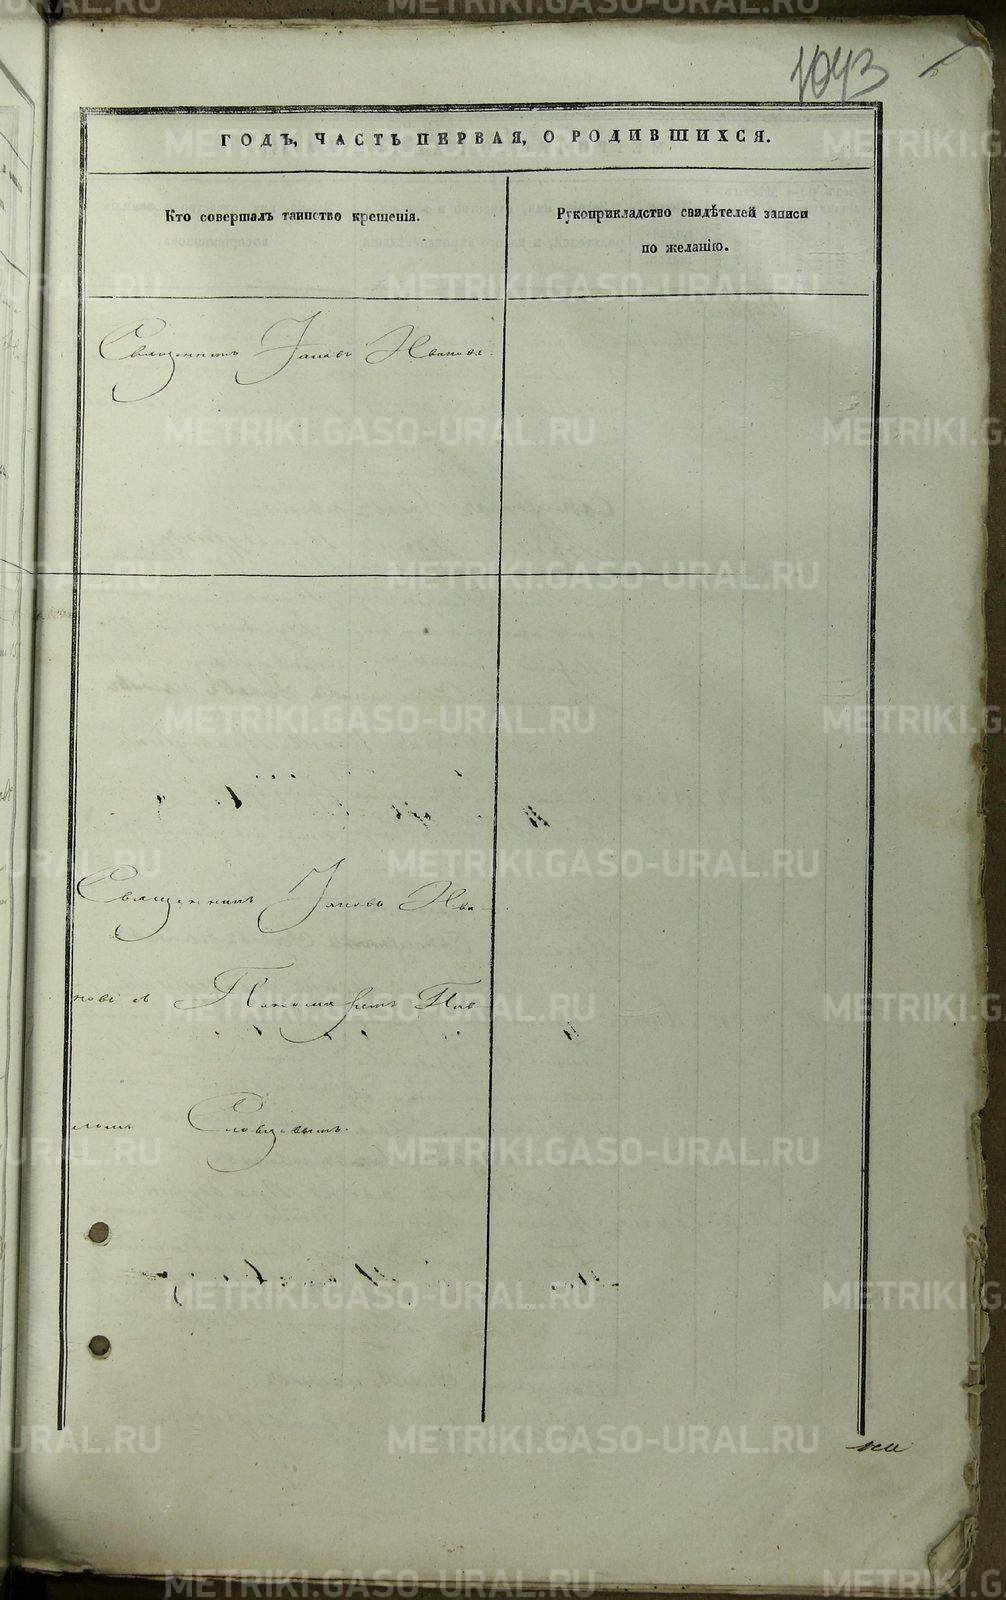 1043
ГОДЪ, ЧАСТЬ ПЕРВАЯ, О РОДИВШИХСЯ.
Кто совершалъ таинство крещенія.
Рукоприкладство свидѣтелей записи
по желанію.
Священникъ Іаковъ Ивановъ.
Священникъ Іаковъ Ива-
новъ съ Пономаремъ Пав
ломъ Словцовымъ.
METRIKI.GASO-URAL.RU